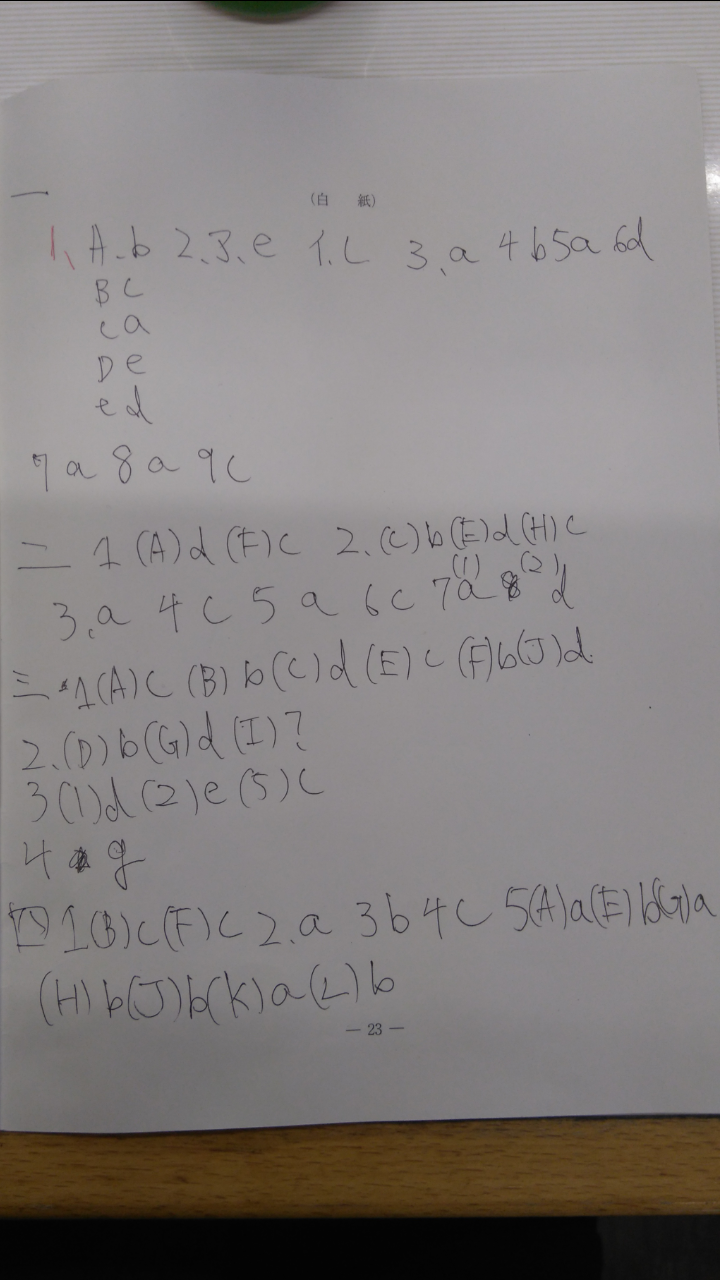 一
(白 紙)
1、A.b 2、3、e 1.c 3、a 4b5a6d
B c
c a
D e
e d
7a 8a 9c
二 1(A)d(F)c 2、(C)b(E)d(H)c
3、a 4c 5a 6c 7(1)a (2)d
三 1(A)c(B)b(C)d(E)c(F)b(J)d
2、(D)b(G)d(I)?
3(1)d(2)e(5)c
4 g
四 1(B)c(F)c 2、a 3b 4c 5(A)a(E)b(G)a
(H)b(J)b(K)a(L)b
— 23 —